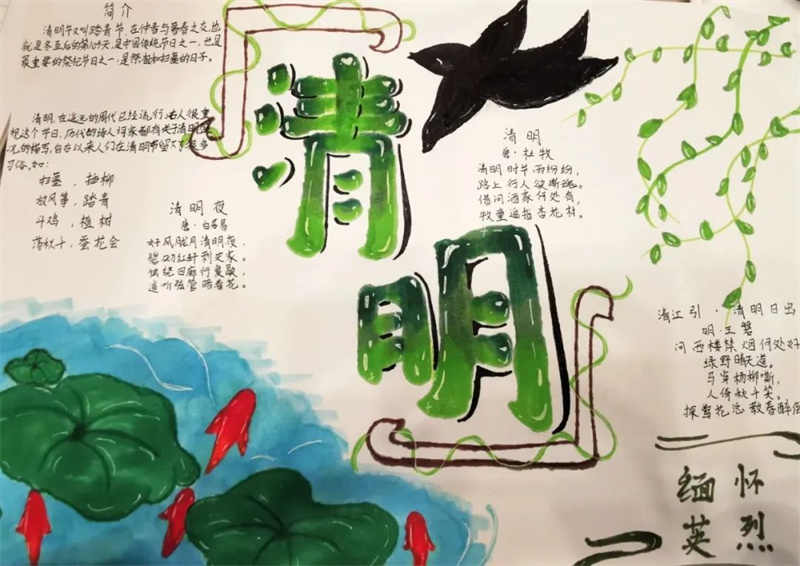 简介
清明节又叫踏青节,在仲春与暮春之交,也
就是冬至后的第108天,是中国传统节日之一,也是
最重要的祭祀节日之一,是祭祖和扫墓的日子。
清明,在遥远的周代已经流行,古人很重
视这个节日,历代的诗人词家都有关于清明
况的描写,自古以来人们在清明节留下了很多
习俗,如:
扫墓,插柳
放风筝,踏青
斗鸡,植树
荡秋千,蚕花会
清明
清明夜
唐·白居易
好风胧月清明夜,
碧砌红轩刺史家。
独绕回廊行复歇,
遥听弦管暗看花。
清明
唐·杜牧
清明时节雨纷纷,
路上行人欲断魂。
借问酒家何处有,
牧童遥指杏花村。
清江引·清明日出
明·王磐
问西楼禁烟何处好
绿野晴天道。
马穿杨柳嘶,
人倚秋千笑。
探莺花总教春醉倒
缅怀
英烈